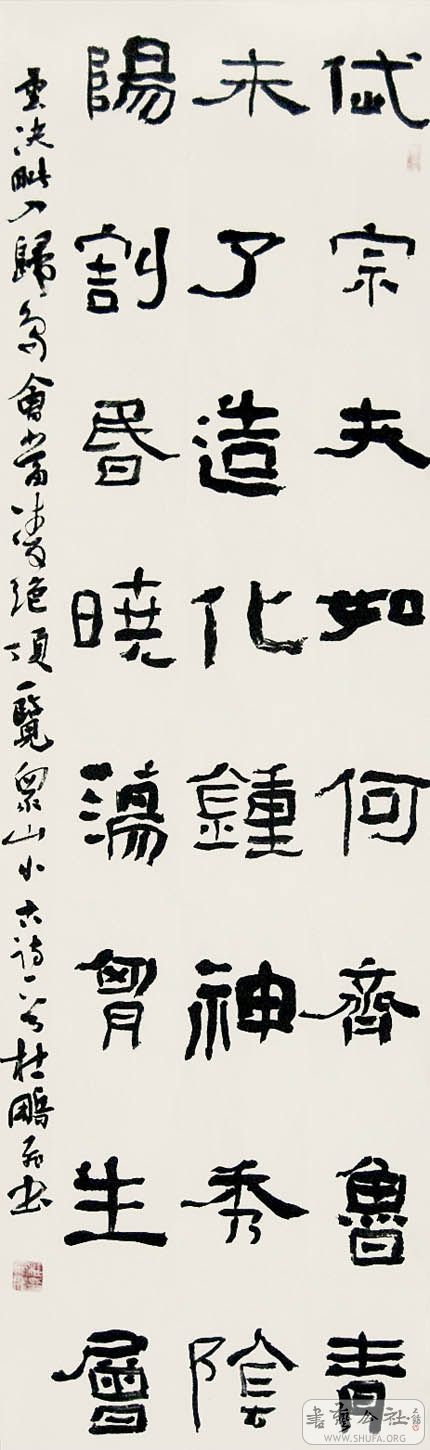 岱宗夫如何齊魯青
未了造化鍾神秀陰
陽割昏曉蕩胷生層
雲決眦入歸鳥會當凌絕頂一覽眾山小古詩一首杜鵬飛書
書藝公社
WWW.SHUFA.ORG